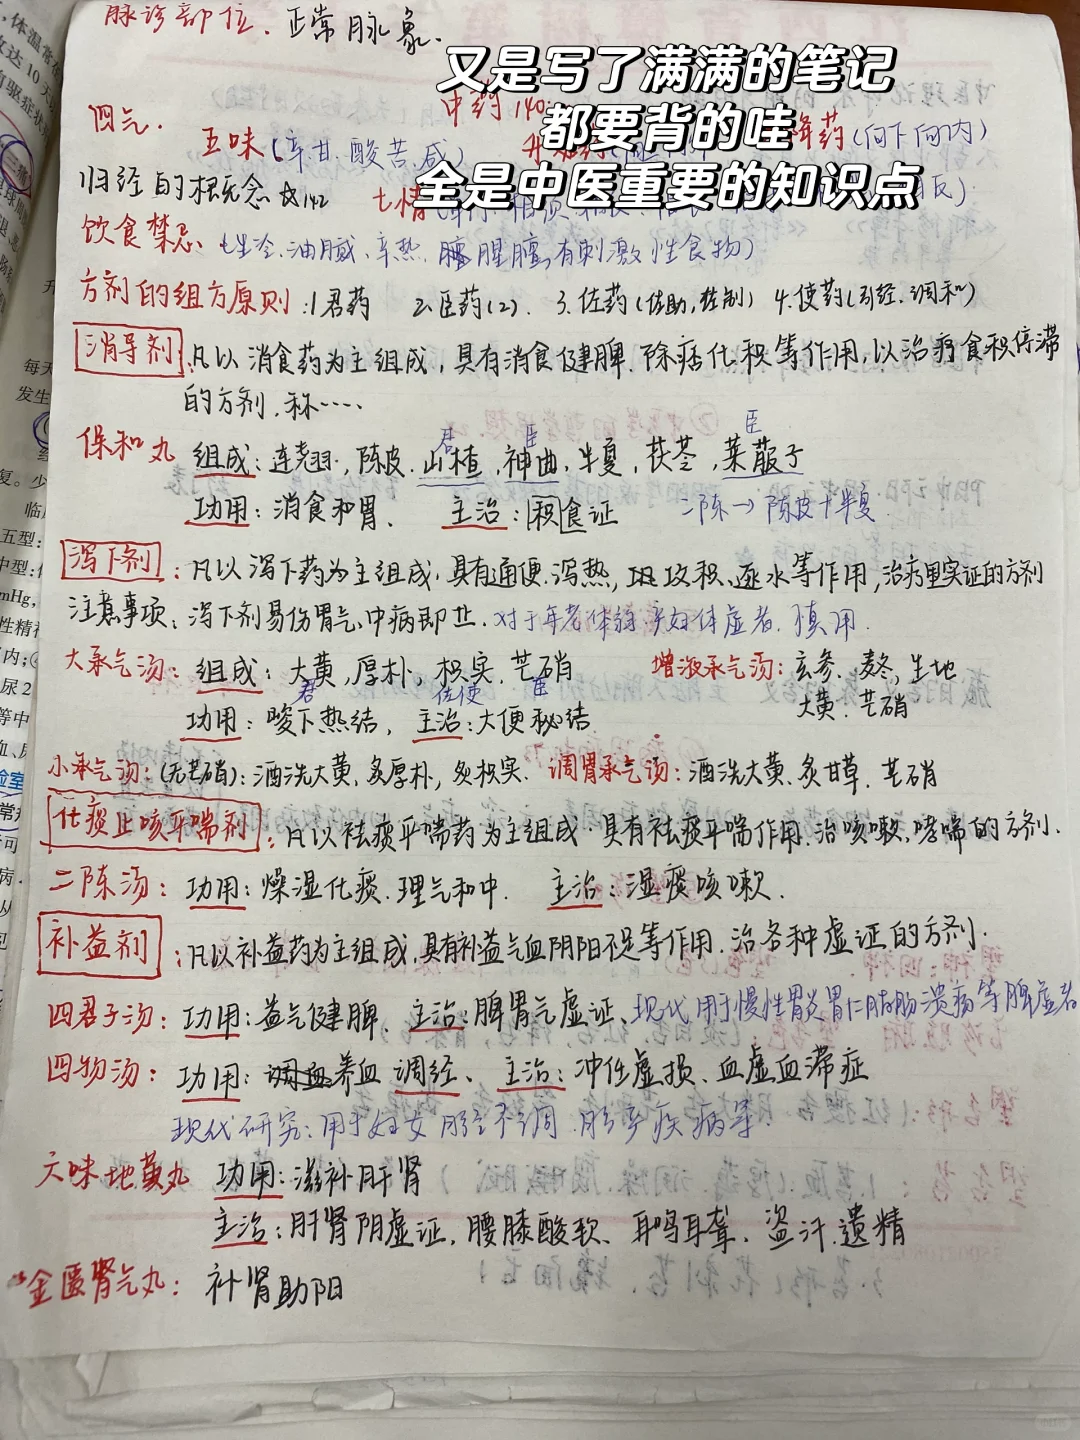 脉诊部位. 正常脉象.
又是写了满满的笔记
都要背的哇
全是中医重要的知识点
四气.
中药140
五味(辛甘.酸苦.咸)
降药(向下向内)
归经的概念 142
七情
饮食禁忌 (生冷.油腻.辛热.腥膻,有刺激性食物)
方剂的组方原则:1.君药 2.臣药(2). 3.佐药(佐助,佐制) 4.使药(引经.调和)
消导剂.凡以消食药为主组成,具有消食健脾.除痞化积等作用,以治疗食积停滞
的方剂.称……
君 臣 臣
保和丸 组成:连翘,陈皮.山楂,神曲,半夏,茯苓,莱菔子
功用:消食和胃、 主治:积食证 二陈→陈皮+半夏.
泻下剂:凡以泻下药为主组成,具有通便.泻热,攻积.逐水等作用,治疗里实证的方剂
注意事项:泻下剂易伤胃气,中病即止.对于年老体弱.孕妇体虚者.慎用.
大承气汤:组成:大黄,厚朴,枳实.芒硝 增液承气汤:玄参.麦冬,生地
君 佐使 臣 大黄.芒硝
功用:峻下热结,主治:大便秘结
小承气汤:(无芒硝):酒洗大黄,炙厚朴,炙枳实. 调胃承气汤:酒洗大黄.炙甘草.芒硝
化痰止咳平喘剂:凡以祛痰平喘药为主组成.具有祛痰平喘作用.治咳嗽,哮喘的方剂.
二陈汤:功用:燥湿化痰.理气和中. 主治:湿痰咳嗽.
补益剂:凡以补益药为主组成,具有补益气血阴阳不足等作用.治各种虚证的方剂.
四君子汤:功用:益气健脾、主治:脾胃气虚证、现代用于慢性胃炎胃十二指肠溃疡等脾虚者
四物汤:功用:养血调经、主治:冲任虚损、血虚血滞症
现代研究:用于妇女月经不调.胎产疾病等
六味地黄丸 功用:滋补肝肾
主治:肝肾阴虚证,腰膝酸软、耳鸣耳聋、盗汗.遗精
金匮肾气丸:补肾助阳